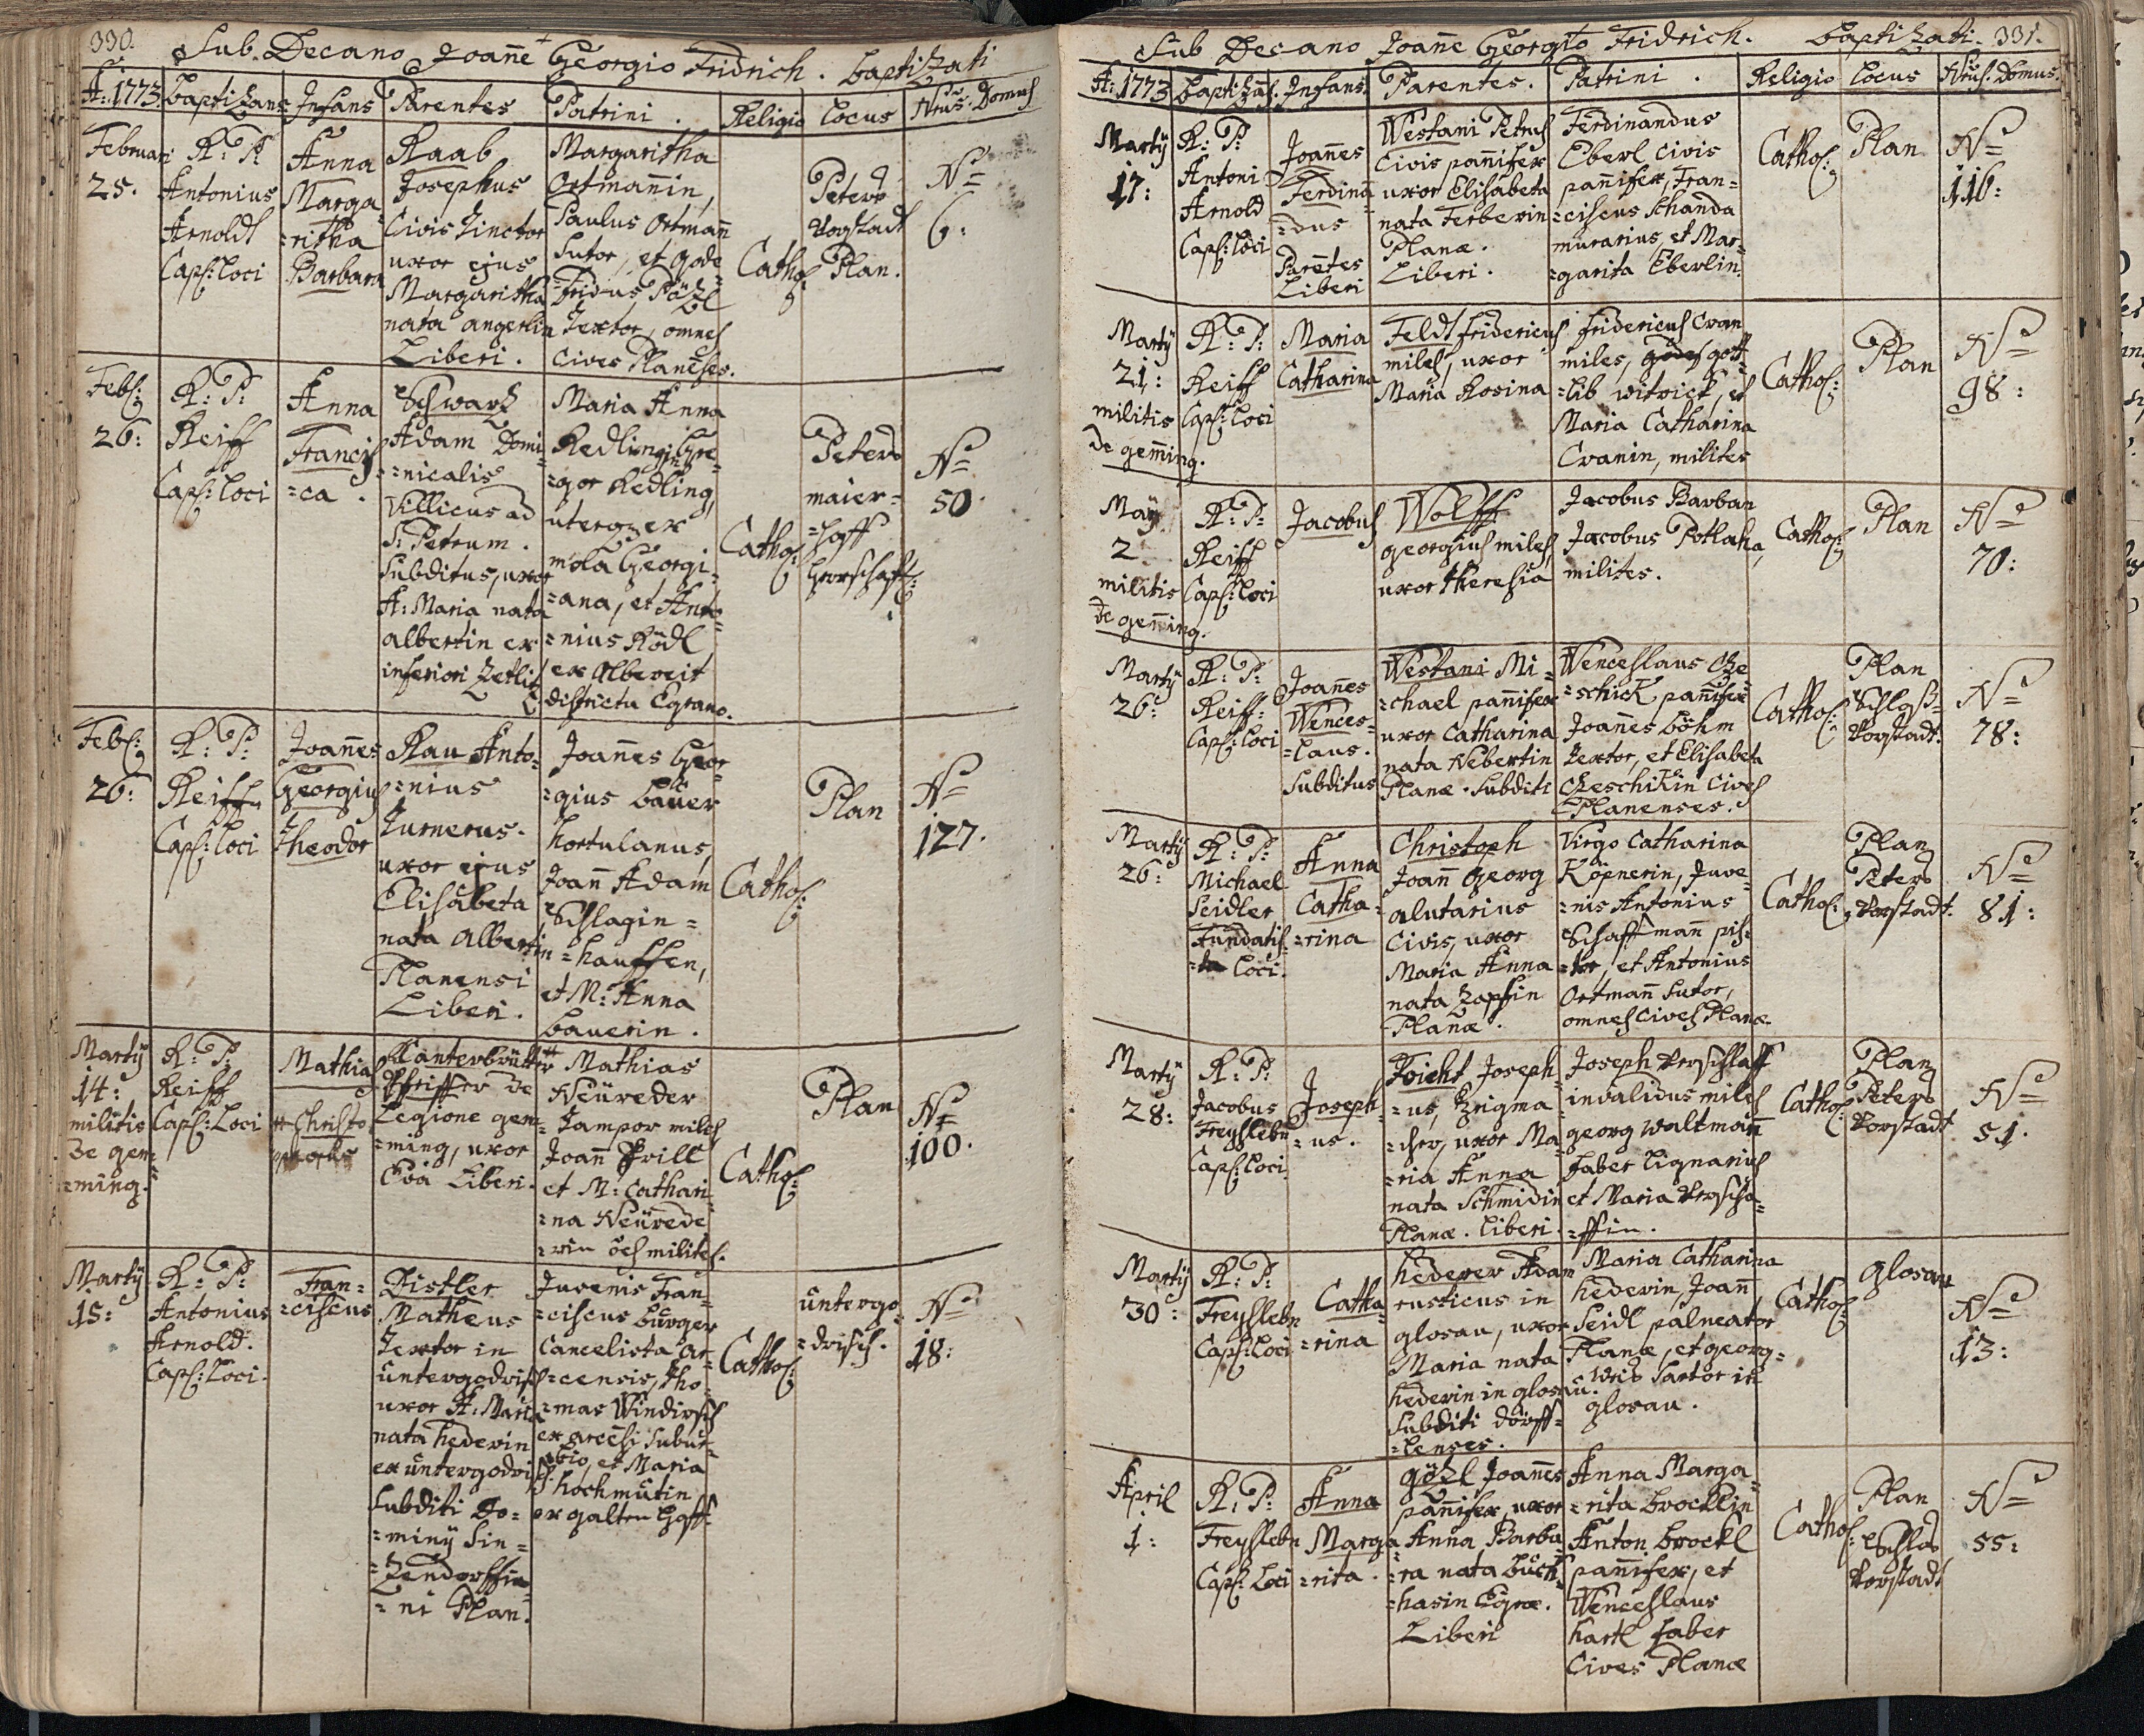 330.
Sub Decano Joanne Georgio Fridrich. baptizati
A: 1773 baptizans Infans Parentes Patrini. Religio Locus Nrus Domus
Februari
25.
R: P:
Antonius
Arnoldt
Capl: Loci
Anna
Marga
=ritha
Barbara
Raab
Josephus
Civis Tinctor
uxor ejus
Margaritha
nata angerlin
Liberi.
Margaritha
Ortmanin,
Paulus Ortmañ
Sutor, et gode
=fridus Pözl
Textor, omnes
Cives Planenses.
Cathol:
Peters
Vorstadt
Plan.
No
6:
Feb:
26:
R: P:
Reiff
Capl: Loci
Anna
Francis
=ca.
Schwartz
Adam Domi
=nicalis
Villicus ad
S: Petrum.
Subditus, uxor
A: Maria nata
albertin ex
inferiori Zetlitz
Maria Anna
Redlingin Gre=
=gor Redling,
uterqz ex
mola Georgi=
=ana, et Anto=
=nius Rödl
ex Albereit
districtu Egrano.
Cathol:
Peters
maier=
=hoff
herrschafft:
No
50.
Feb:
26:
R: P:
Reiff
Capl: Loci
Joañes
Georgius
Theodor
Rau Anto=
=nius
Turnerus.
uxor ejus
Elisabeta
nata Albertin
Planensi
Liberi.
Joañes Geor
=gius bauer
hortulanus,
Joañ Adam
Schlagin=
=hauffen,
et M: Anna
bauerin.
Cathol:
Plan
No
127.
Martÿ
14:
militis
de gem
=ming.
R: P:
Reiff
Capl: Loci
Mathias
Christo
Kanterbrütter
Pfeiffer de
Legione gem=
=ming, uxor
Eva Liberi.
Mathias
Neüreder
Tampor miles
Joañ Prill
et M: Cathari
=na Neürede
=rin oes milites.
Cathol:
Plan
No
100.
Martÿ
15:
R: P:
Antonius
Arnold.
Capl: Loci.
Fran=
=ciscus
Distler
Matheus
Textor in
untergodrisch
uxor A: Maria
nata hederin
ex untergodrisch
Subditi Do=
=minÿ Sin=
=Zendorffia
=ni Plan.
Juvenis Fran=
=ciscus bürger
Cancelista Ar=
=censis, Tho=
=mas Windirsch
ex arcensi Subur=
=bio, et Maria
hochmutin
ex galten hoff.
Cathol:
untergo
=drisch.
No
18:
Sub Decano Joanne Georgio Fridrich. baptizati. 331.
A: 1773 baptizãs. Infans. Parentes. Patrini. Religio Locus Nrus: Domus.
Martÿ
17:
R: P:
Antoni
Arnold
Capl: Loci
Joañes
Ferdinã
=dus
Parentes
Liberi
Westani Petrus
Civis pañifex
uxor Elisabeta
nata Ferberin
Planæ.
Liberi.
Ferdinandus
Eberl Civis
pañifex, Fran=
=ciscus Schanda
murarius, et Mar=
=garita Eberlin.
Cathol:
Plan
No
116:
Martÿ
21:
militis
de gem̃ing.
R: P:
Reiff
Capl: Loci
Maria
Catharina
Feldt fridericus
miles, uxor
Maria Rosina
fridericus Cran
miles, gott
=lib witrick, et
Maria Catharina
Cranin, milites
Cathol:
Plan
No
98:
May
2
militis
de gem̃ing.
R: P:
Reiff
Capl: Loci
Jacobus
Wolff
georgius miles,
uxor Theresia
Jacobus Barban
Jacobus Potlaha,
milites.
Cathol:
Plan
No
70:
Martÿ
26:
R: P:
Reiff:
Capl: Loci
Joañes
Wences=
=laus.
Subditus
Westani Mi=
=chael pañifex
uxor Catharina
nata Kebertin
Planæ. Subditi
Wenceslaus Cze
=schick pañifex
Joañes böhm
Textor, et Elisabeta
Czeschikin Cives
Planenses.
Cathol:
Plan
Schloß=
Vorstadt.
No
78:
Martÿ
26:
R: P:
Michael
Seidler
Fundatis
=ta Loci.
Anna
Catha=
=rina
Christoph
Joañ Georg
alutarius
Civis, uxor
Maria Anna
nata Zapfin
Planæ.
Virgo Catharina
Köpnerin, Juve=
=nis Antonius
Schaffmañ pis=
=tor, et Antonius
Ortmañ Sutor,
omnes Cives Planæ.
Cathol:
Plan
Peters
Vorstadt.
No
81:
Martÿ
28:
R: P:
Jacobus
Freyslebn
Capl: Loci
Joseph=
=us.
Joicht Joseph=
=us, Zeigma
=cher, uxor Ma
=ria Anna
nata Schmidin
Planæ. Liberi.
Joseph Verschlaff
invalidus miles
georg waltmañ
faber Lignarius
et Maria Verschla=
=ffin.
Cathol:
Plan
Peters
Vorstadt
No
51.
Martÿ
30:
R: P:
Freyslebn
Capl: Loci
Catha
=rina
hederer Adam
rusticus in
glosau, uxor
Maria nata
hederin in glosau.
Subditi dörff=
=lenses.
Maria Catharina
hederin, Joañ
Seidl palneator
Planæ, et georg=
Weis Sartor in
glosau.
Cathol:
glosau
No
13:
April
1:
R: P:
Freyslebn
Capl: Loci
Anna
Marga
=rita.
gözl Joañes
pañifex, uxor
Anna Barba
=ra nata buck
=hasin Egræ.
Liberi
Anna Marga=
=rita brocklin
Anton brockl
pañifex, et
Wenceslaus
hartl faber
Cives Planæ
Cathol:
Plan
Schlos
Vorstadt
No
55: